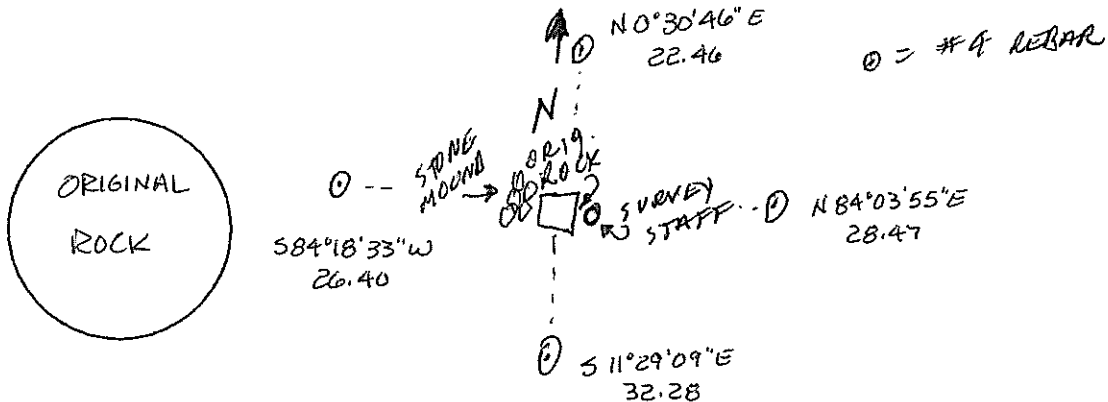 N 0°30'46" E
22.46
= #4 REBAR
N
ORIGINAL
ROCK
STONE
MOUND
ORIG.
ROCK
SURVEY
STAFF
S84°18'33"W
26.40
N 84°03'55"E
28.47
S 11°29'09"E
32.28